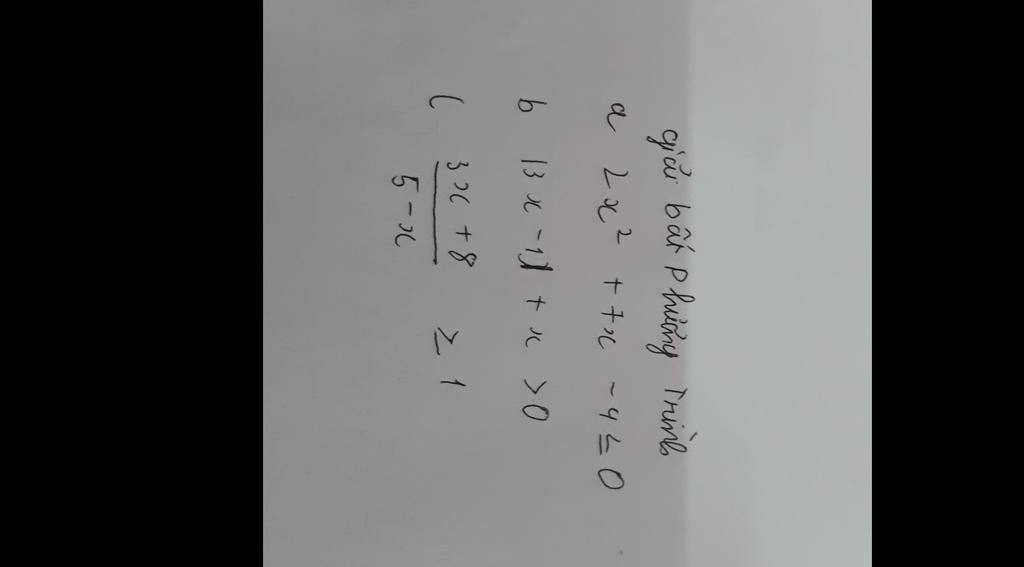 giải bất phương Trình
a 2x² + 7x - 4 ≤ 0
b |3x - 1| + x > 0
c (3x + 8)/(5 - x) ≥ 1